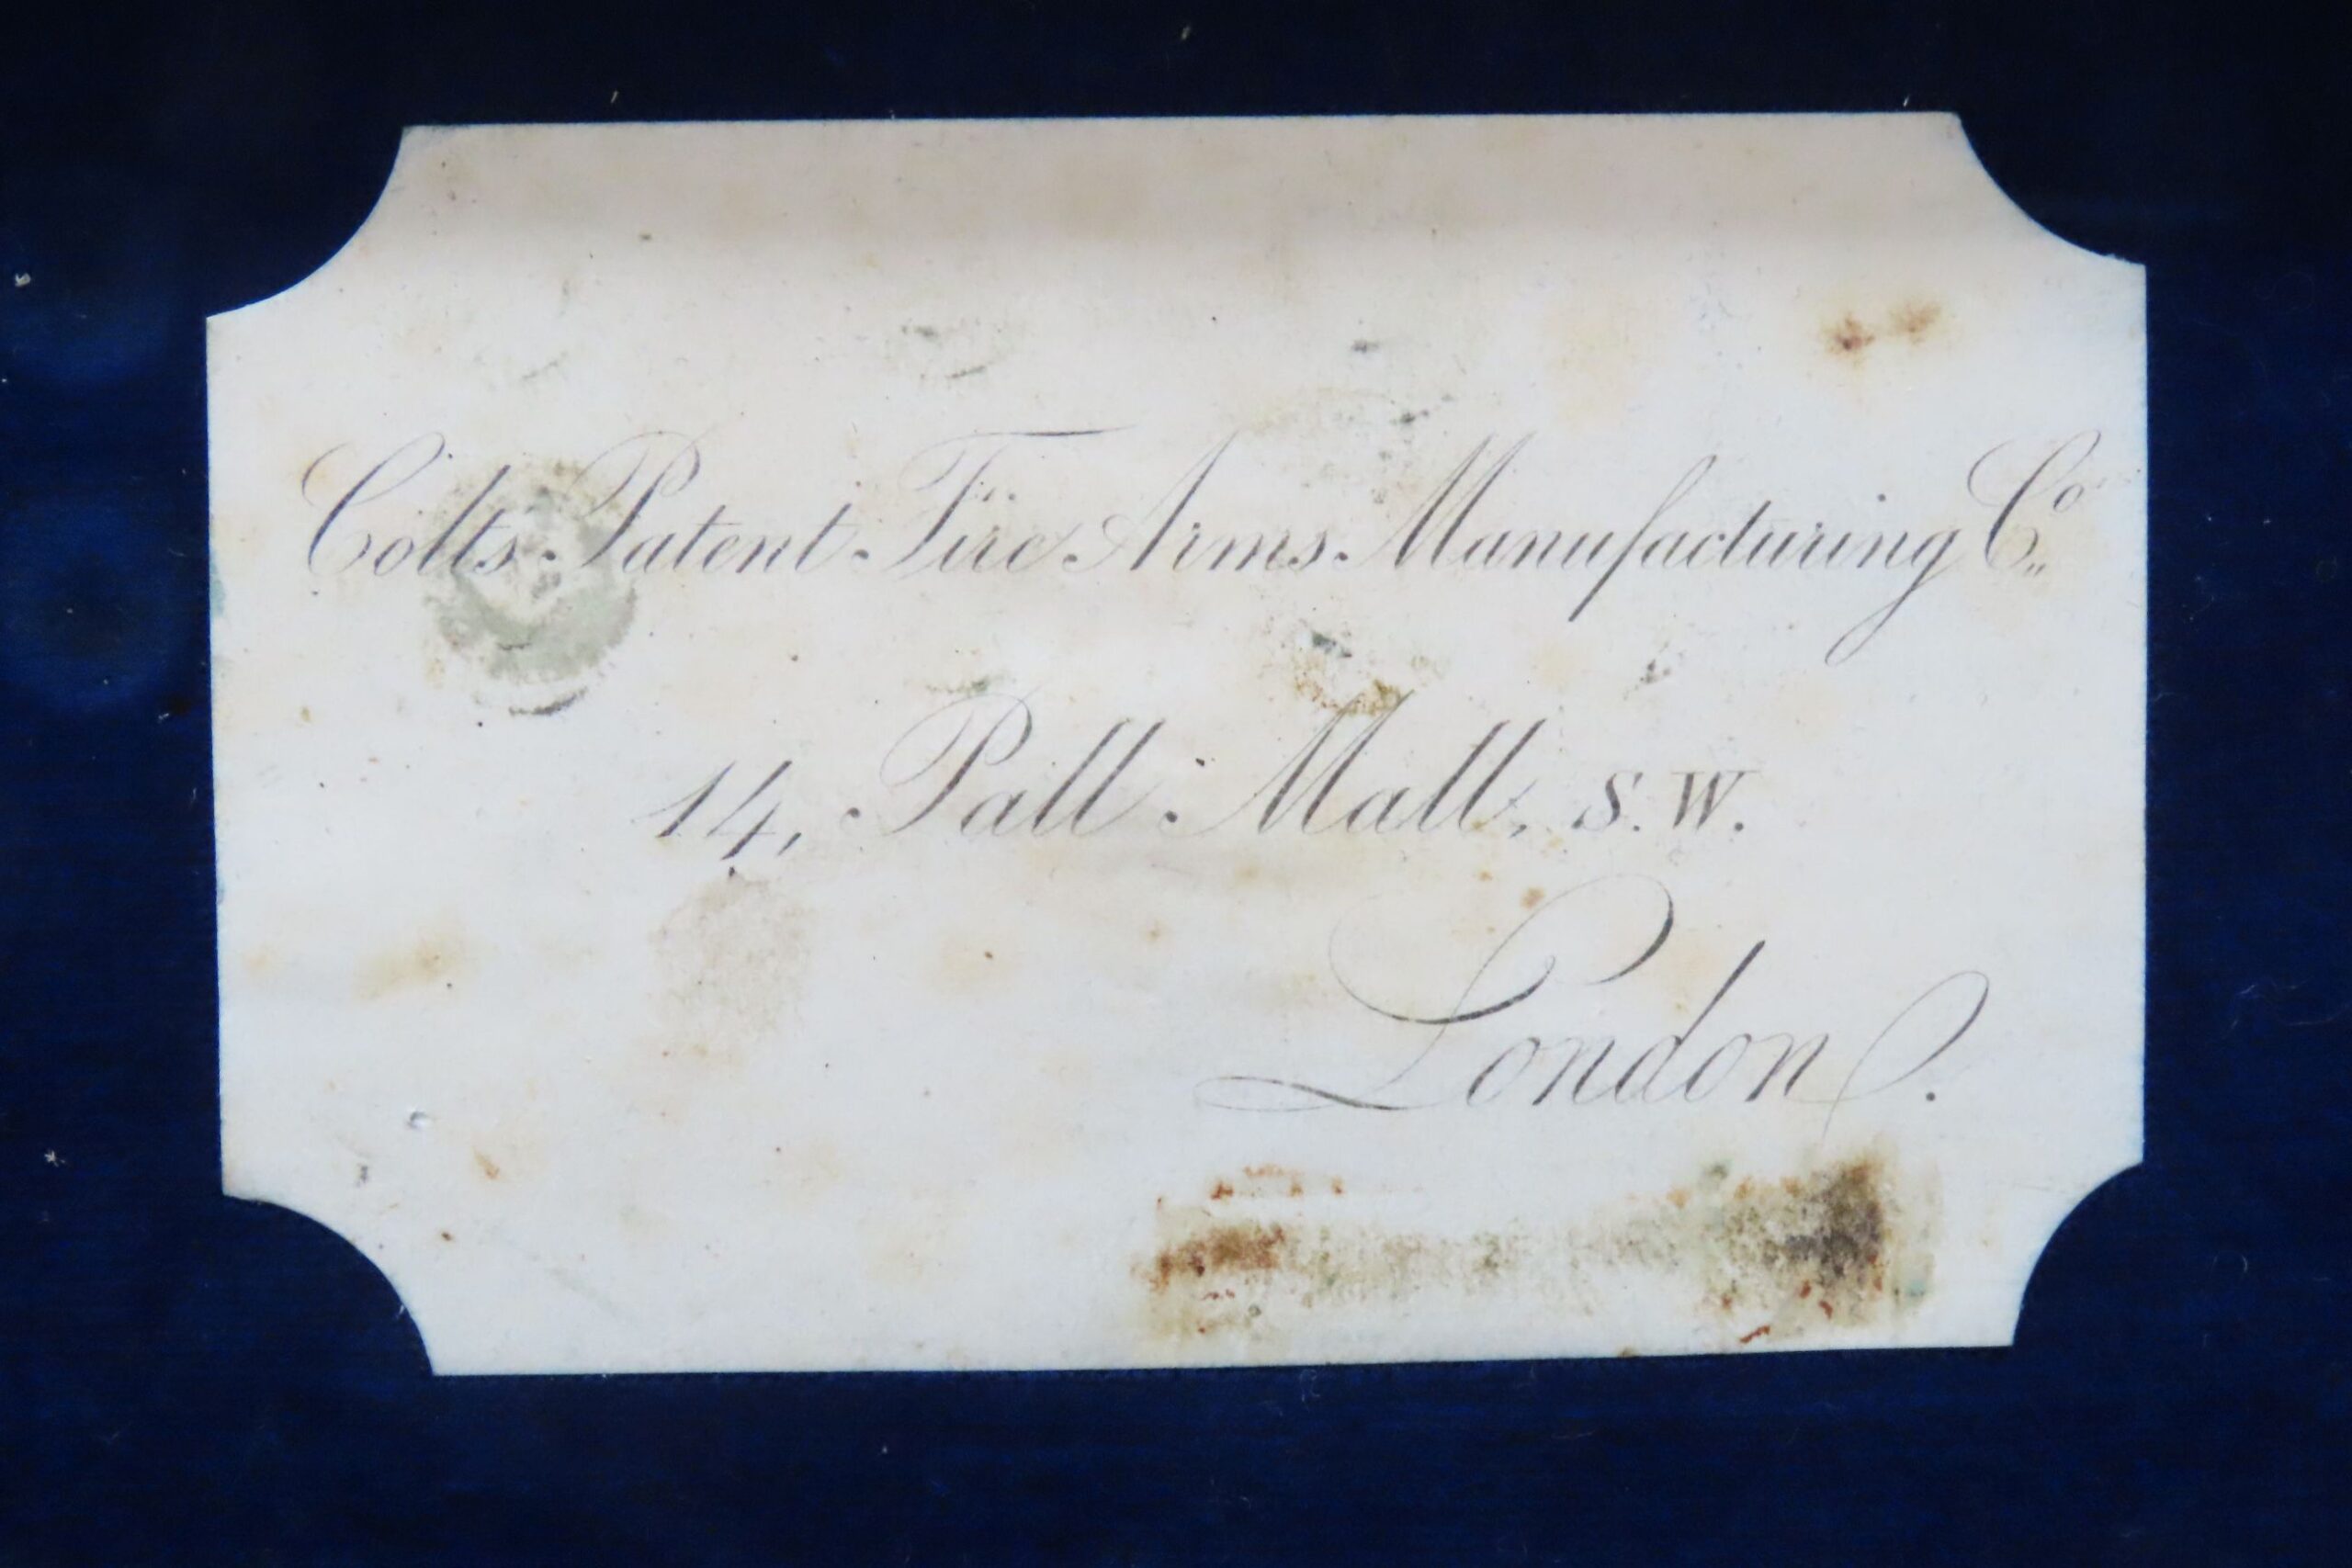 Colts Patent Fire Arms Manufacturing Co.
14, Pall Mall, S.W.
London.